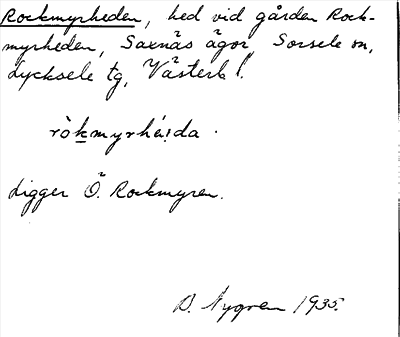 Rockmyrheden, hed vid gården Rock-
myrheden, Saxnäs ägor, Sorsele sn,
Lycksele tg, Västerb l.
ròkmyrhéi̯da.
Ligger Ö. Rockmyren.
D. Nygren 1935.